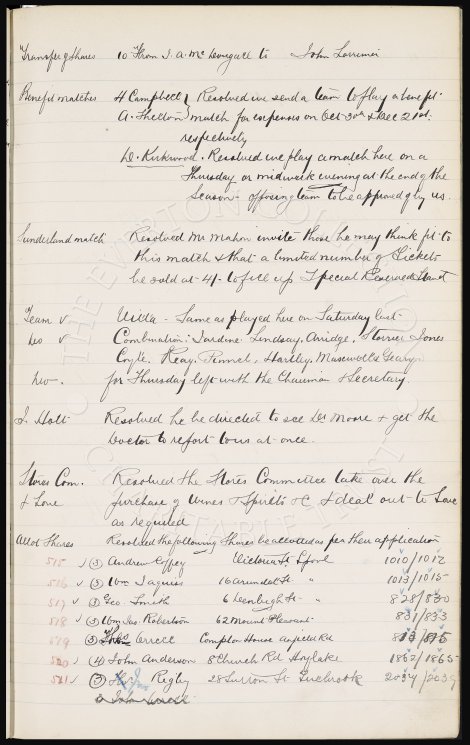 Transfer of Shares 10 From J. A. McDougall to John Lorrimer
Benefit matches H Campbell } Resolved we send a team to play a benefit
A. Shelton } match for expenses on Oct 30th & Dec 21st.
respectively
D. Kirkwood. Resolved we play a match here on a
Thursday or midweek evening at the end of the
Season - opposing team to be approved of by us.
Sunderland match Resolved Mr Mahon invite those he may think fit to
this match & that a limited number of Tickets
be sold at 4/- to fill up Special Reserved Stand
Team v Villa - Same as played here on Saturday last
Do v Combination: Jardine Lindsay, Arridge, Storrier Jones
Coyle. Reay. Pinnel, Hartley, Maxwell & Geary
Do -. for Thursday left with the Chairman & Secretary.
J. Holt Resolved he be directed to see Dr Moore & get the
Doctor to report to us at once.
Stores Com. Resolved the Stores Committee take over the
& Love purchase of Wines & Spirits &c & deal out to Love
as required
Allot Shares Resolved the following Shares be allotted as per their application
515 (3) Andrew Victoria St Lpool 1010/1012
516 (3) Wm 16 Arundel St " 1013/1015
517 (3) Geo. Smith 6 St " 828/830
518 (3) Wm Jas. Robertson 62 Mount Pleasant 831/833
519 (3) Compton House Anfield Rd 813/815
520 (4) John Anderson 8 Church Rd Hoylake 1862/1865
521 (3) Jno Rigby 28 Sutton St Tuebrook 2037/2039